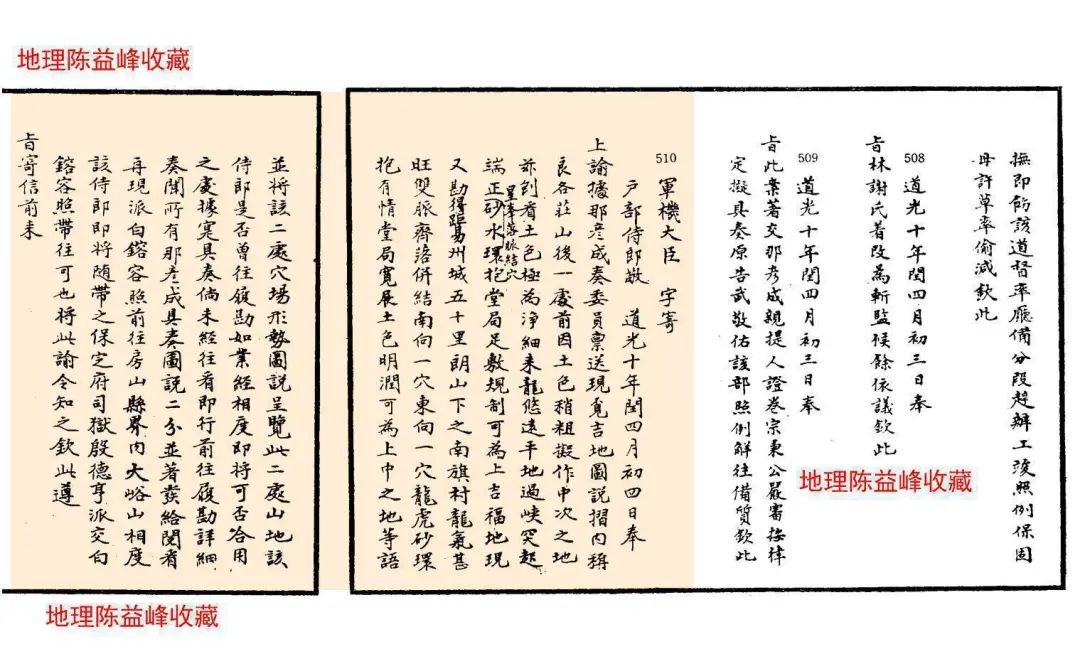 地理陈益峰收藏
撫即飭該道督率廳備分段趕辦工竣照例保固
毋許草率偷減欽此
508 道光十年閏四月初三日奉
旨林謝氏着改為斬監候餘依議欽此
509 道光十年閏四月初三日奉
旨此案著交那彥成親提人證卷宗秉公嚴審按律
定擬具奏原告武敬佑該部照例解往備質欽此
地理陈益峰收藏
510 軍機大臣 字寄
戶部侍郎敬 道光十年閏四月初四日奉
上諭據那彥成奏委員稟送現覓吉地圖説摺內稱
良各莊山後一處前因土色稍粗擬作中次之地
茲刨看土色極為淨細来龍悠遠平地過峽突起
星峯落脈結穴
端正砂水環抱堂局足敷規制可為上吉福地現
又勘得距易州城五十里朗山下之南旗村龍氣甚
旺雙脈齊落併結南向一穴東向一穴龍虎砂環
抱有情堂局寬展土色明潤可為上中之地等語
並将該二處穴場形勢圖説呈覽此二處山地該
侍郎是否曾往履勘如業經相度即将可否合用
之處據寔具奏倘未經往看即行前往履勘詳細
奏聞所有那彥成具奏圖説二分並著發給閱看
再現派白鎔容照前往房山縣界內大峪山相度
該侍郎即将隨帶之保定府司獄殷德亨派交白
鎔容照帶往可也将此諭令知之欽此遵
旨寄信前来
地理陈益峰收藏